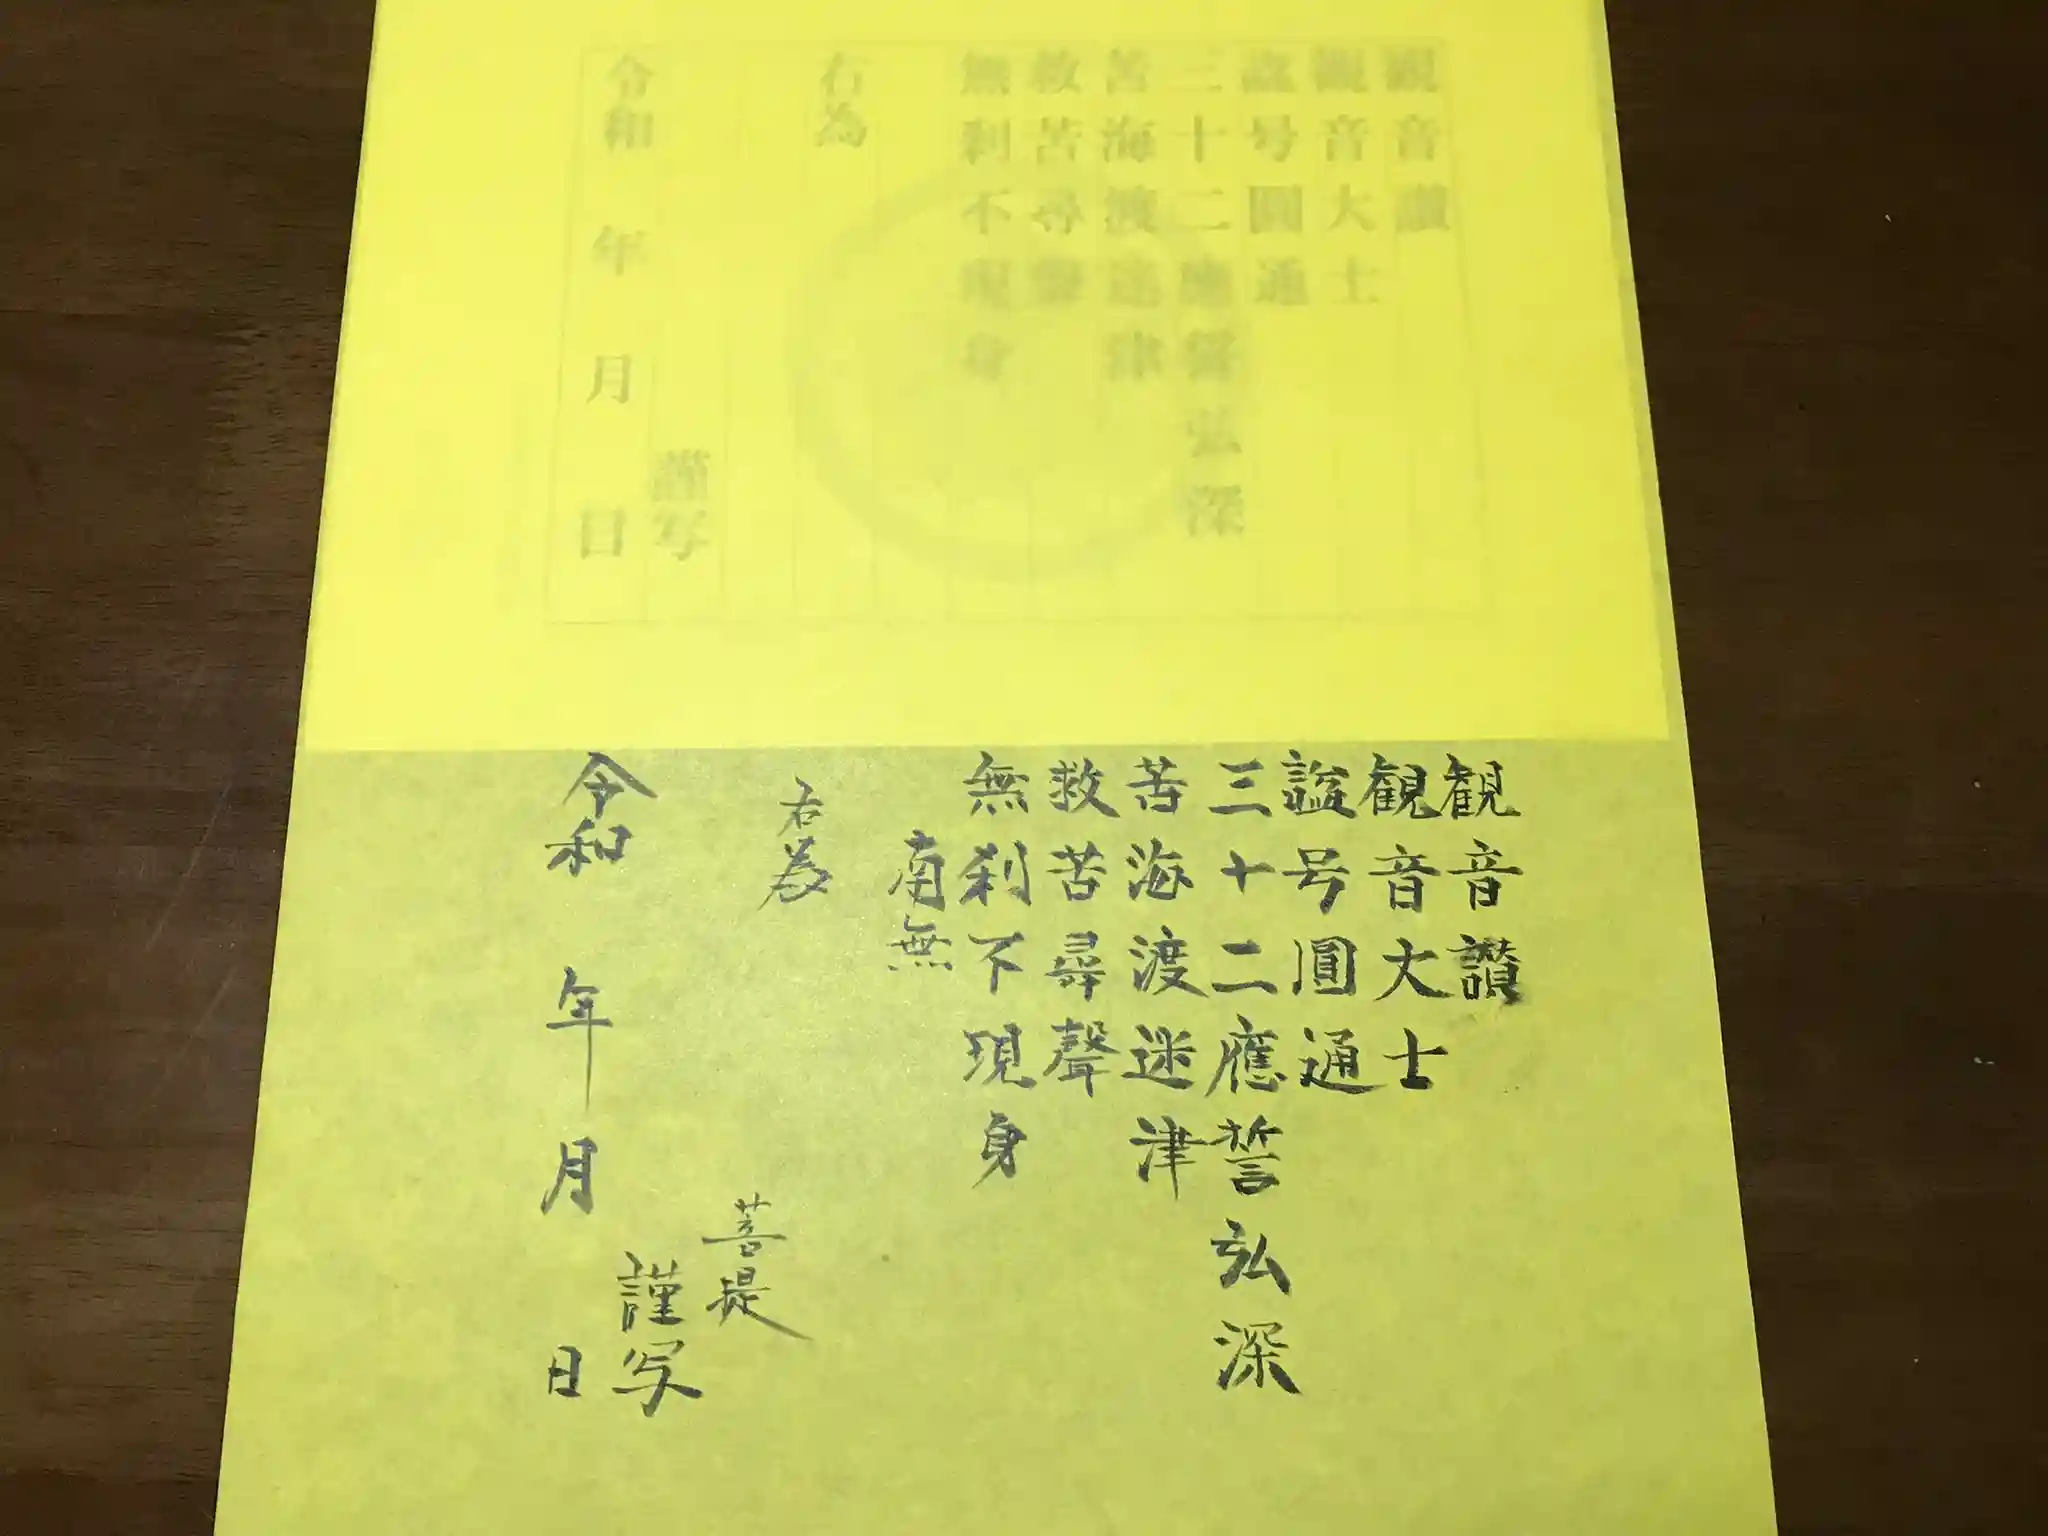 観音讃
観音大士
謚号圓通
三十二應誓弘深
苦海渡迷津
救苦尋聲
無刹不現身
右為
謹写
令和 年 月 日
観音讃
観音大士
謚号圓通
三十二應誓弘深
苦海渡迷津
救苦尋聲
無刹不現身
南無
右為
菩提
謹写
令和 年 月 日